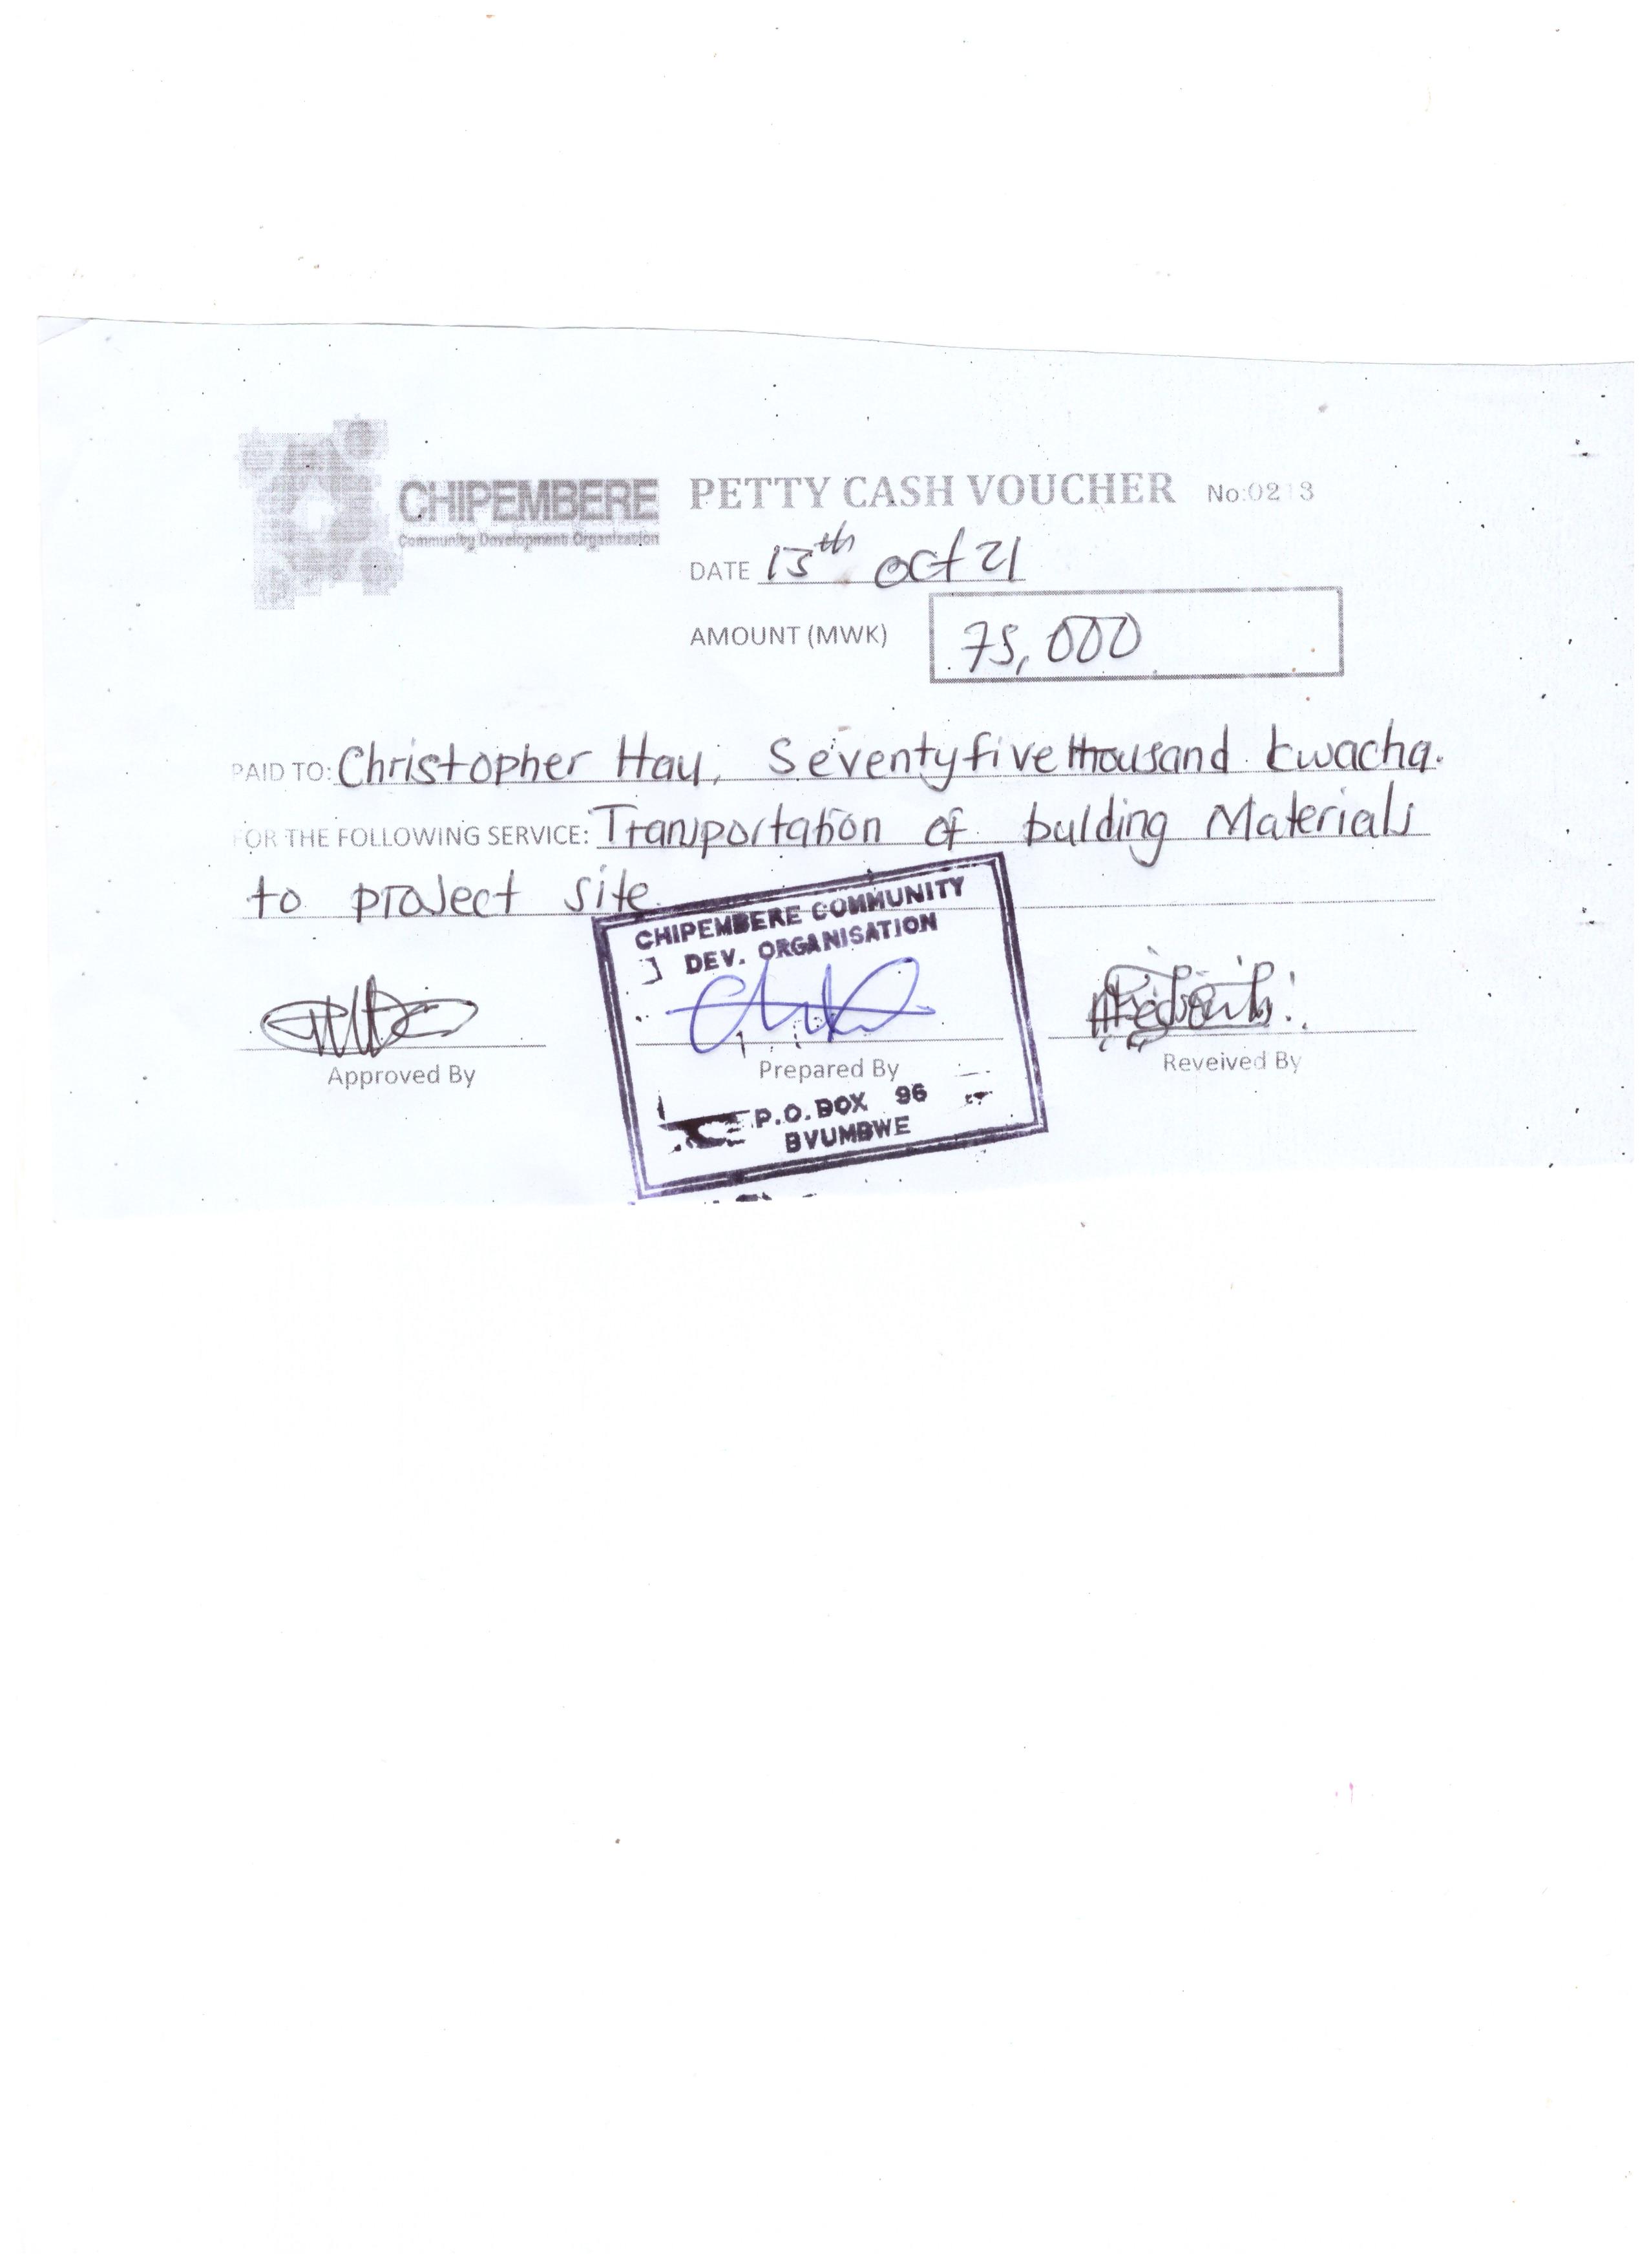 CHIPEMBERE
Community Development Organization
PETTY CASH VOUCHER No:02 3
DATE 13th Oct 21
AMOUNT (MWK) 75,000
PAID TO: Christopher Hau, Seventyfive thousand kwacha.
FOR THE FOLLOWING SERVICE: Transportation of bulding Materials
to project site.
CHIPEMBERE COMMUNITY
DEV. ORGANISATION
Approved By
Prepared By
Reveived By
P.O. BOX 96
BVUMBWE